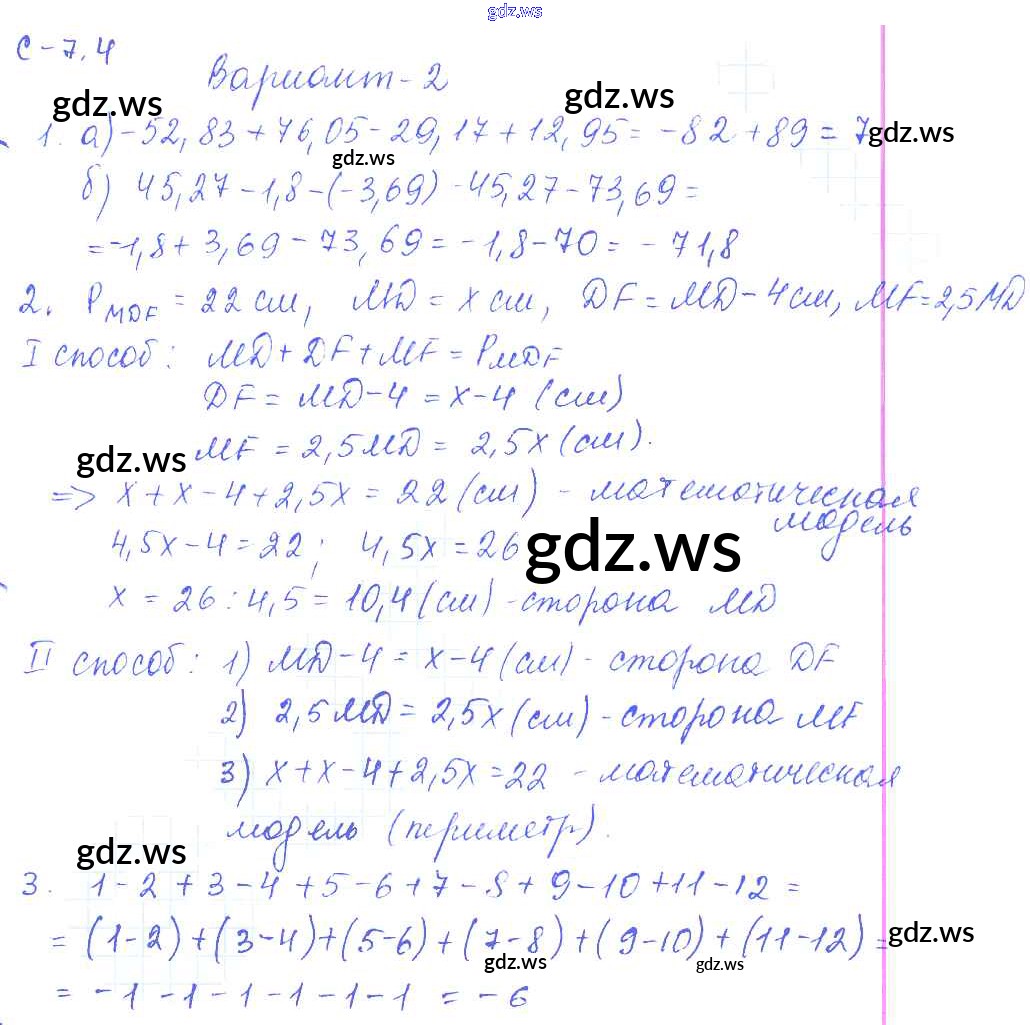 gdz.ws
С-7.4
Вариант-2
gdz.ws gdz.ws
1. а) -52,83+76,05-29,17+12,95= -82+89=7
gdz.ws
gdz.ws
б) 45,27-1,8-(-3,69)-45,27-73,69=
=-1,8+3,69-73,69=-1,8-70=-71,8
2. P MDF = 22 см, MD = x см, DF = MD-4 см, MF=2,5MD
I способ: MD+DF+MF=P MDF
DF = MD-4 = x-4 (см)
gdz.ws
MF = 2,5MD = 2,5x (см).
=> x+x-4+2,5x = 22 (см) - математическая
модель
4,5x-4=22; 4,5x=26
gdz.ws
x = 26:4,5=10,4 (см) - сторона MD
II способ: 1) MD-4 = x-4 (см) - сторона DF
2) 2,5MD = 2,5x (см) - сторона MF
3) x+x-4+2,5x=22 - математическая
модель (периметр).
gdz.ws
3. 1-2+3-4+5-6+7-8+9-10+11-12=
= (1-2)+(3-4)+(5-6)+(7-8)+(9-10)+(11-12)=
gdz.ws
gdz.ws gdz.ws
= -1-1-1-1-1-1 = -6